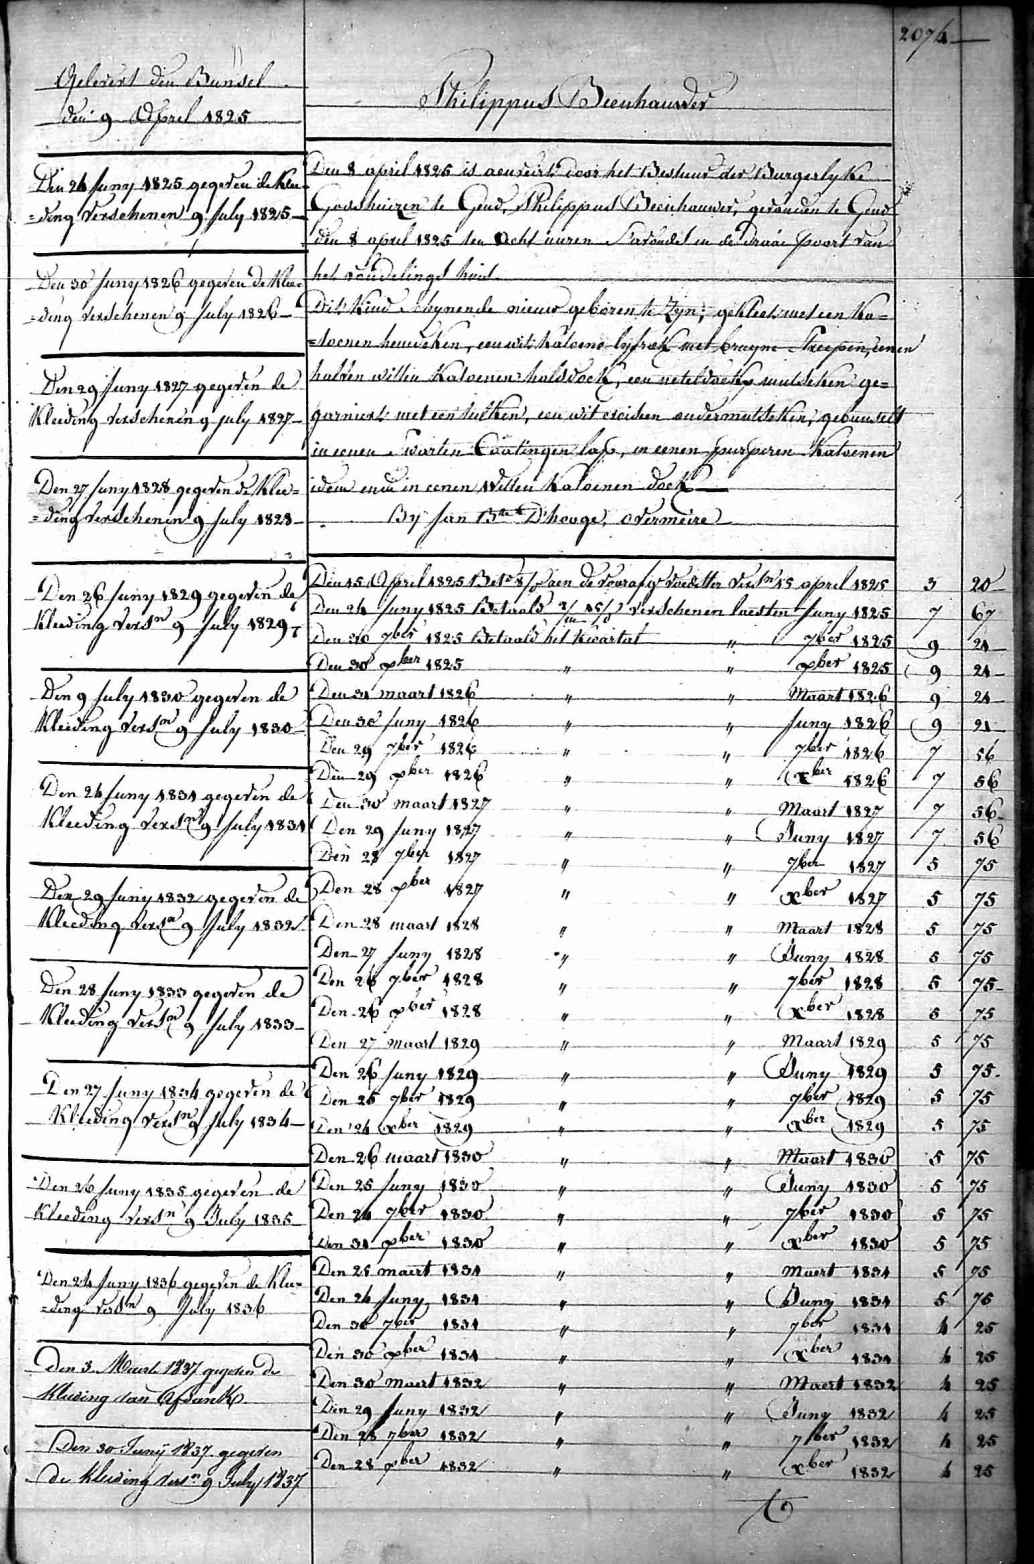 2074
Gelevert den Bunsel
den 9 April 1825
Den 24 Juny 1825 gegeven de Klee-
=ding verschenen 9 July 1825
Den 30 Juny 1826 gegeven de Klee-
=ding verschenen 9 July 1826
Den 29 Juny 1827 gegeven de
Kleeding verschenen 9 July 1827
Den 27 Juny 1828 gegeven de Klee=
=ding verschenen 9 July 1828
Den 26 Juny 1829 gegeven de
Kleeding versn 9 July 1829
Den 9 July 1830 gegeven de
Kleeding versn 9 July 1830
Den 24 Juny 1831 gegeven de
Kleeding versn 9 July 1831
Den 29 Juny 1832 gegeven de
Kleeding versn 9 July 1832
Den 28 Juny 1833 gegeven de
Kleeding versn 9 July 1833
Den 27 Juny 1834 gegeven de
Kleeding versn 9 July 1834
Den 26 Juny 1835 gegeven de
Kleeding versn 9 July 1835
Den 24 Juny 1836 gegeven de Klee-
=ding versn 9 July 1836
Den 3 Maert 1837 gegeven de
Kleeding van
Den 30 Junÿ 1837 gegeven
de Kleeding versn 9 July 1837
Philippus Beenhauwer
Den 8 april 1825 is aenveirt door het Bestuer der Burgerlyke
Godshuizen te Gend, Philippus Beenhauwer, gevonden te Gend
den 8 april 1825 ten acht uuren s'avonds in de Draae poort van
het vondelings huis
Dit Kind schynende nieuw geboren te zyn; gekleet met een ka=
=toenen hemdeken, een wit katoene lyfrok met bruyne streepen, eenen
halven witten katoenen halsdoek, een neteldoeks mutseken ge=
garniert met een tulleken, een wit ondermutseken, gebunselt
in eenen swarten Coatingen lap, in eenen purperen Katoenen
idem ende in eenen witten katoenen doek
By Jan Bte D'hooge, overmeire
Den 15 April 1825 aen de voorafge voedster versn 15 april 1825 3 20
Den 24 Juny 1825 Betaald verschenen laesten Juny 1825 7 67
Den 30 7ber 1825 Betaald het Kwartael " 7ber 1825 9 21
Den 30 xber 1825 " " xber 1825 9 21
Den 31 maart 1826 " " Maart 1826 9 21
Den 30 Juny 1826 " " Juny 1826 9 21
Den 29 7ber 1826 " " 7ber 1826 7 56
Den 29 xber 1826 " " Xber 1826 7 56
Den 30 maart 1827 " " Maart 1827 7 56
Den 29 Juny 1827 " " Juny 1827 7 56
Den 28 7ber 1827 " " 7ber 1827 5 75
Den 28 xber 1827 " " Xber 1827 5 75
Den 28 maart 1828 " " Maart 1828 5 75
Den 27 Juny 1828 " " Juny 1828 5 75
Den 26 7ber 1828 " " 7ber 1828 5 75
Den 26 xber 1828 " " Xber 1828 5 75
Den 27 maart 1829 " " Maart 1829 5 75
Den 26 Juny 1829 " " Juny 1829 5 75
Den 25 7ber 1829 " " 7ber 1829 5 75
Den 24 Xber 1829 " " Xber 1829 5 75
Den 26 maart 1830 " " Maart 1830 5 75
Den 25 Juny 1830 " " Juny 1830 5 75
Den 24 7ber 1830 " " 7ber 1830 5 75
Den 31 xber 1830 " " Xber 1830 5 75
Den 25 maert 1831 " " Maert 1831 5 75
Den 24 Juny 1831 " " Juny 1831 5 75
Den 30 7ber 1831 " " 7ber 1831 4 25
Den 30 xber 1831 " " Xber 1831 4 25
Den 30 maert 1832 " " Maert 1832 4 25
Den 29 Juny 1832 " " Juny 1832 4 25
Den 28 7ber 1832 " " 7ber 1832 4 25
Den 28 xber 1832 " " Xber 1832 4 25